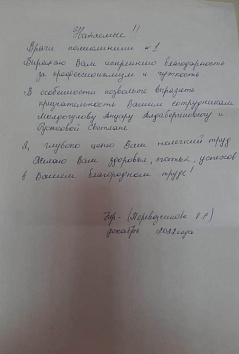 Уважаемые !!
Врачи поликлиники №1
Выражаю Вам искреннюю благодарность
за профессионализм и чуткость
В особенности позвольте выразить
признательность Вашим сотрудникам
Светлане
Я, глубоко ценю Ваш нелегкий труд
Желаю Вам здоровья, счастья, успехов
в Вашем благородном труде!
(Переводчикова
декабрь 2022 года